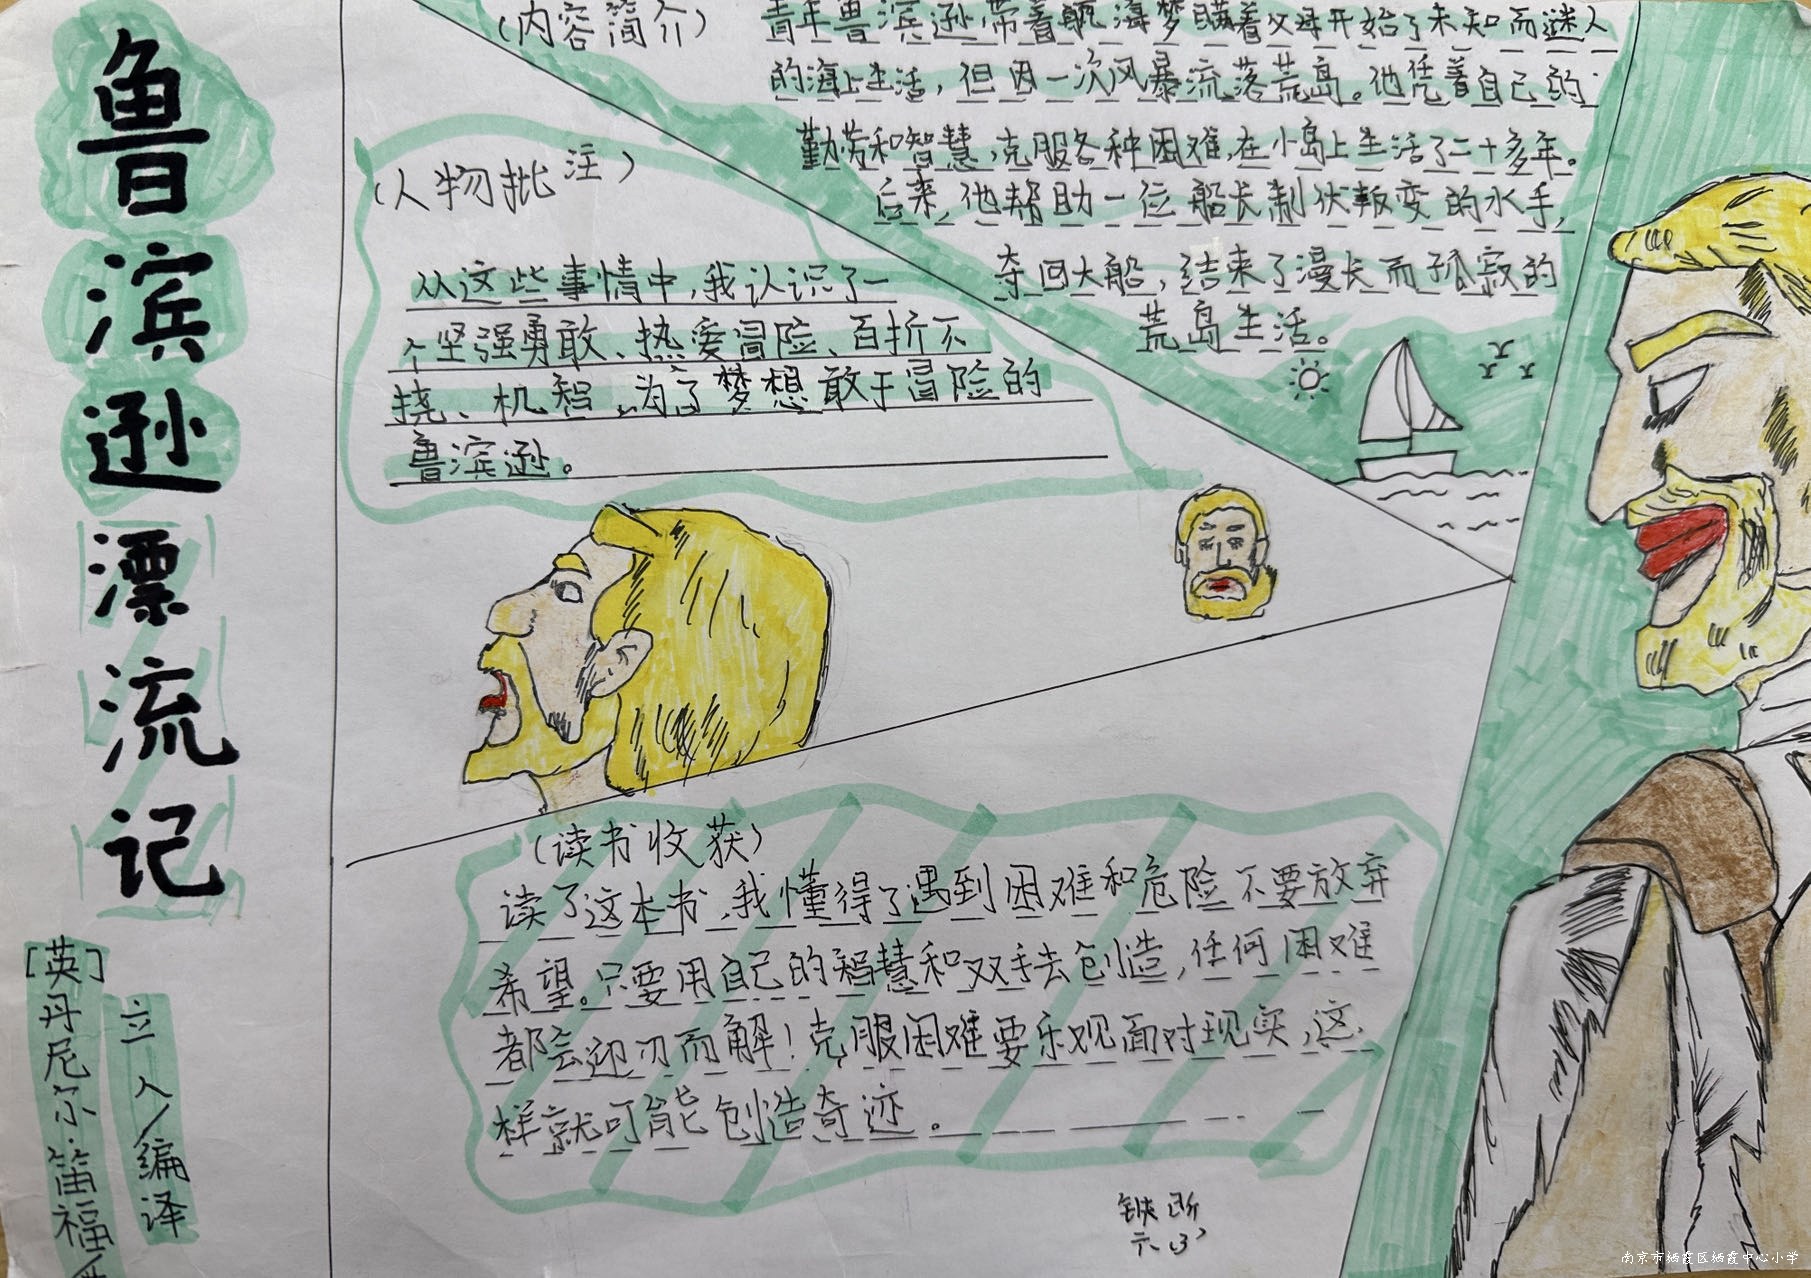 鲁滨逊漂流记
[英]丹尼尔·笛福/著
立人/编译
(内容简介)
青年鲁滨逊,带着航海梦瞒着父母开始了未知而迷人
的海上生活,但因一次风暴流落荒岛。他凭着自己的
勤劳和智慧,克服各种困难,在小岛上生活了二十多年。
后来,他帮助一位船长制伏叛变的水手,
夺回大船,结束了漫长而孤寂的
荒岛生活。
(人物批注)
从这些事情中,我认识了一
个坚强勇敢、热爱冒险、百折不
挠、机智,为了梦想敢于冒险的
鲁滨逊。
(读书收获)
读了这本书,我懂得了遇到困难和危险不要放弃
希望。只要用自己的智慧和双手去创造,任何困难
都会迎刃而解!克服困难要乐观面对现实,这
样就可能创造奇迹。
南京市栖霞区栖霞中心小学